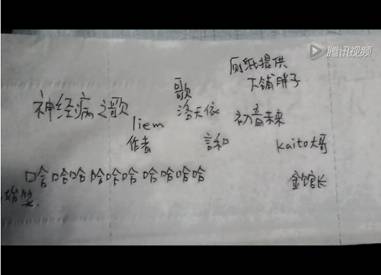 腾讯视频
厕纸提供
大铺胖子
神经病之歌
歌
洛天依
初音未来
liem
作者
言和
kaito大哥
哈哈哈哈哈哈哈哈哈哈
金馆长